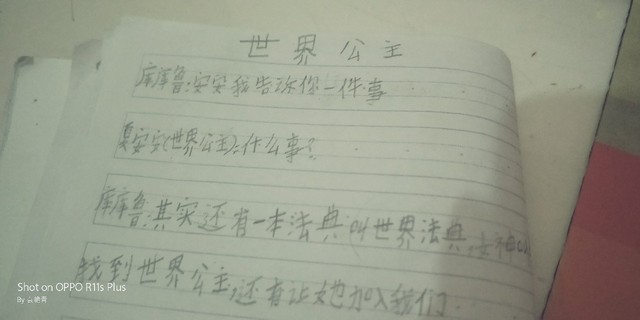 世界公主
库库鲁:安安我告诉你一件事
夏安安(世界公主):什么事?
库库鲁:其实还有一本法典叫世界法典,女神
找到世界公主,还有让她加入我们.
Shot on OPPO R11s Plus
By